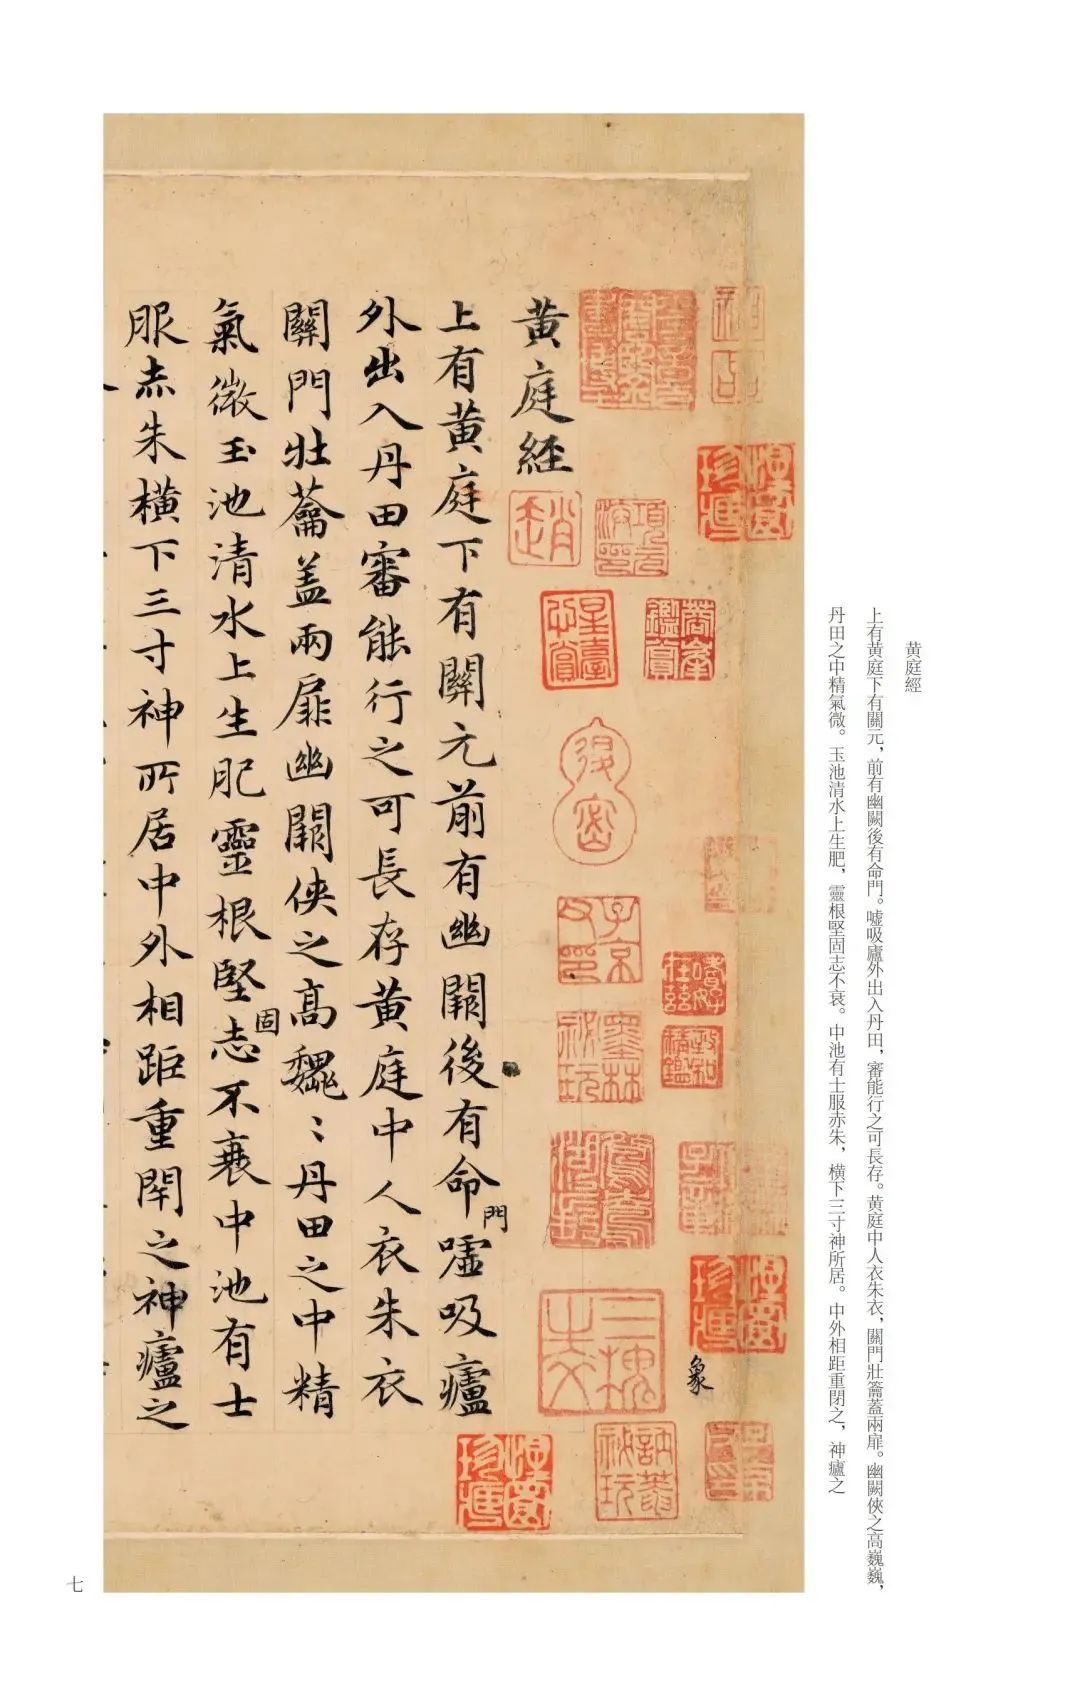 黄庭經
上有黄庭下有關元，前有幽闕後有命門。噓吸廬外出入丹田，審能行之可長存。黄庭中人衣朱衣，關門壯籥蓋兩扉。幽闕俠之高巍巍，
丹田之中精氣微。玉池清水上生肥，靈根堅固志不衰。中池有士服赤朱，橫下三寸神所居。中外相距重閉之，神廬之
象
項元汴印
子京父印
墨林祕玩
趙
黄庭經
上有黄庭下有關元前有幽闕後有命門噓吸廬
外出入丹田審能行之可長存黄庭中人衣朱衣
關門壯蘥盖兩扉幽闕俠之高巍〻丹田之中精
氣微玉池清水上生肥靈根堅固志不衰中池有士
服赤朱橫下三寸神所居中外相距重閉之神廬之
七